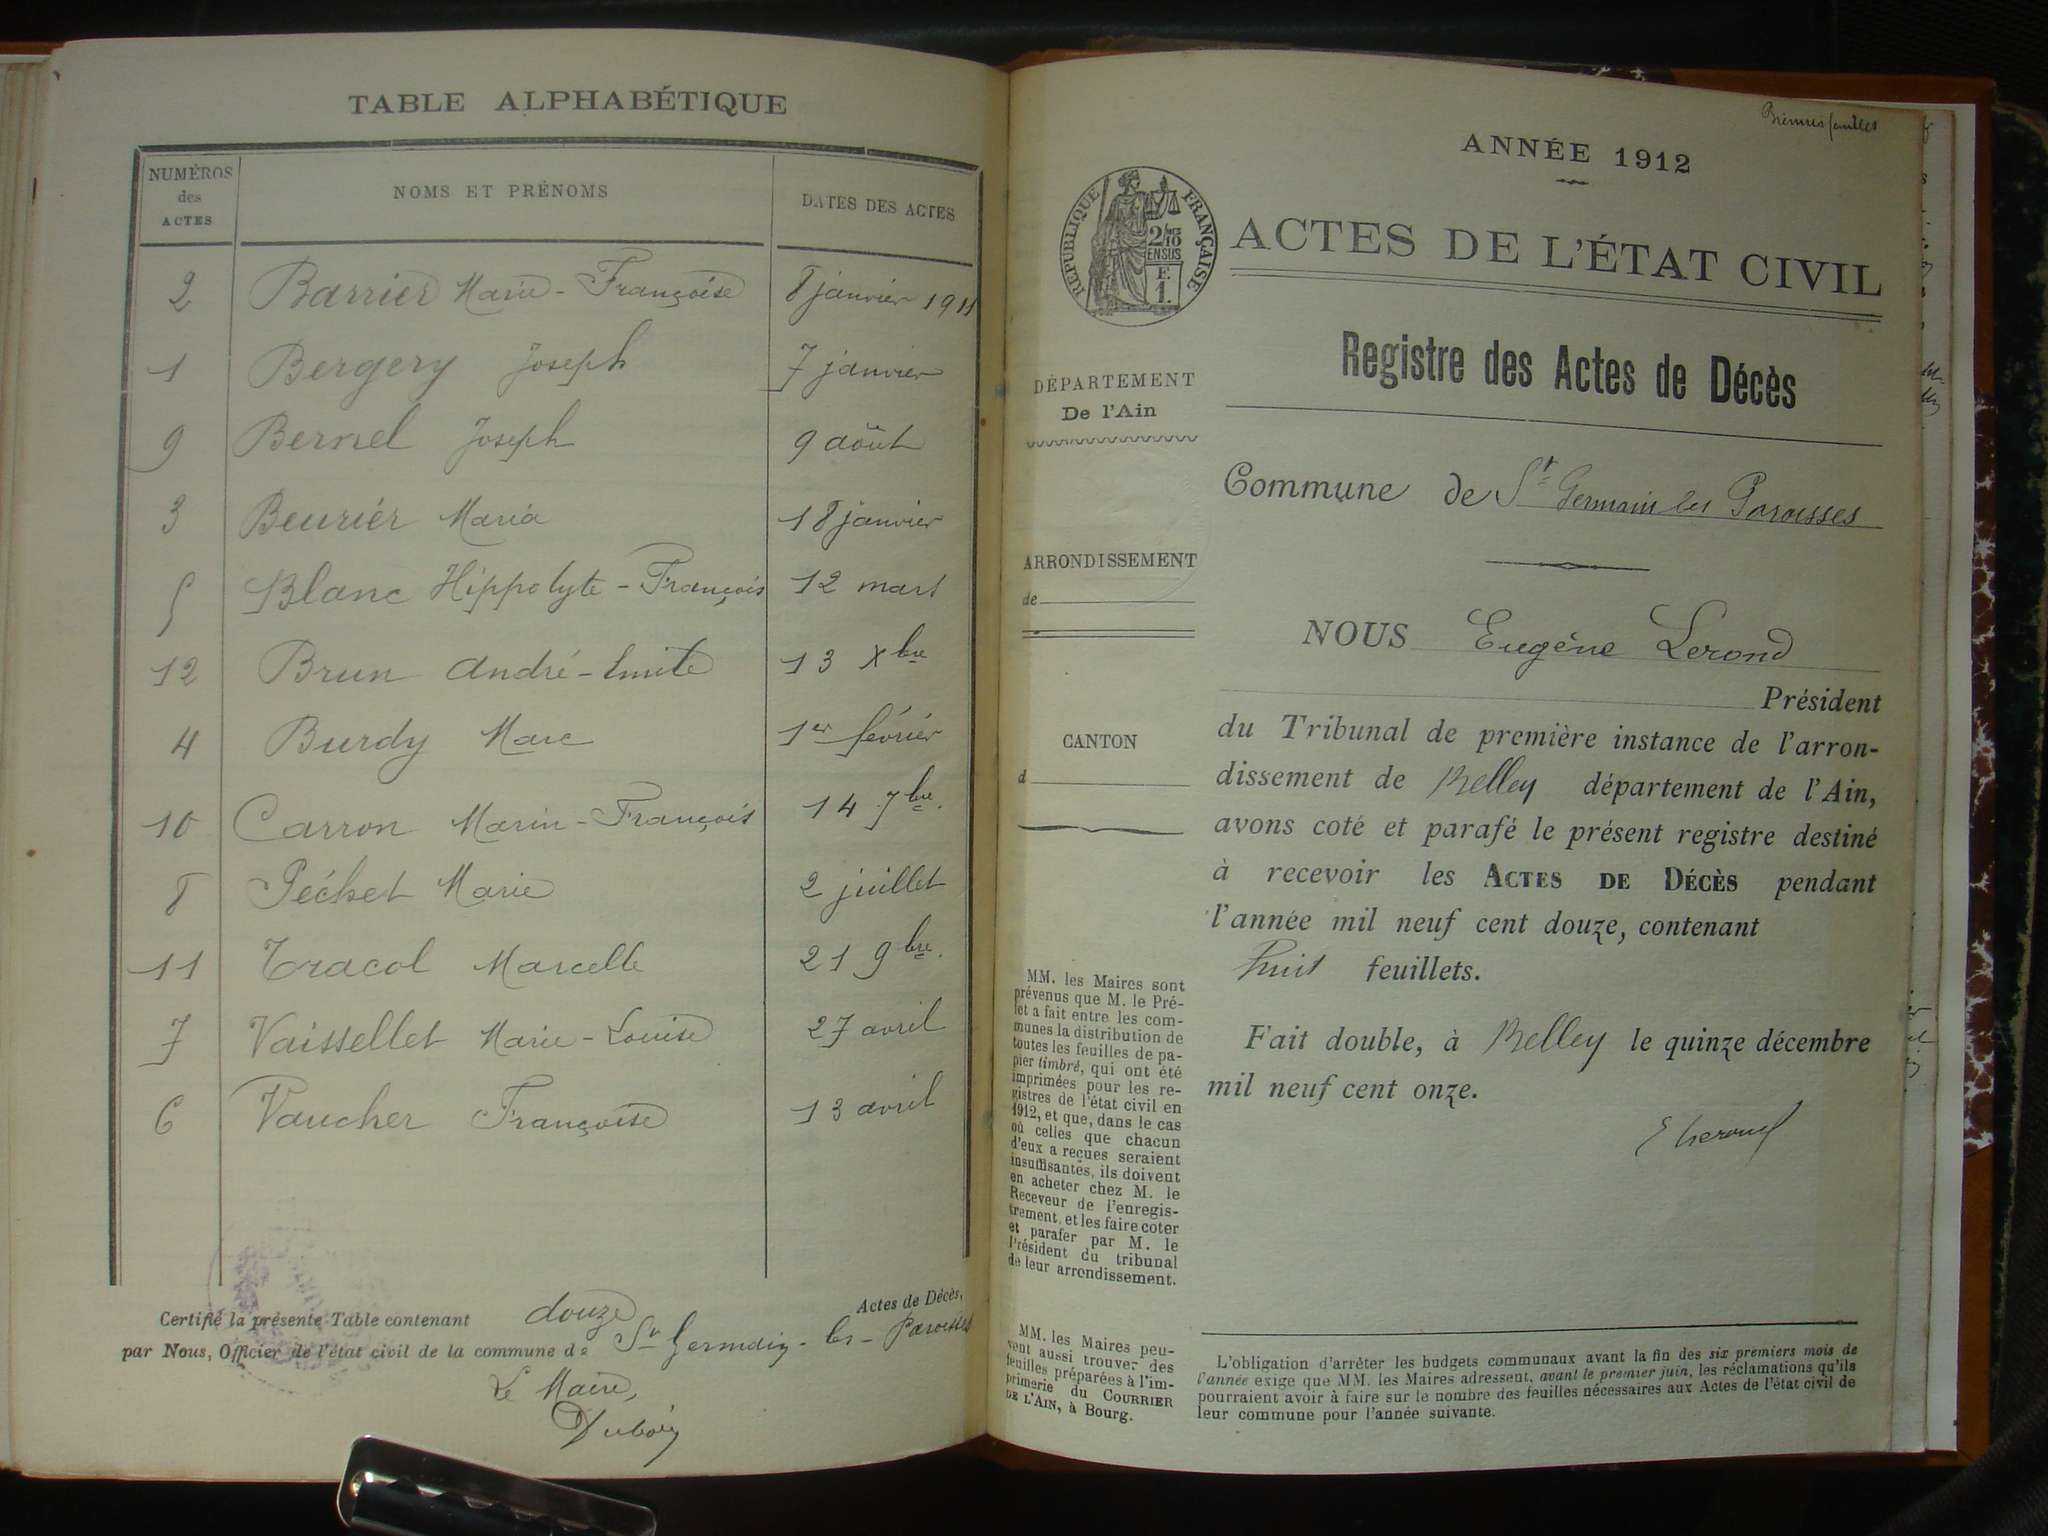 TABLE ALPHABÉTIQUE
NUMÉROS des ACTES NOMS ET PRÉNOMS DATES DES ACTES
2 Barrier Marie-Françoise 8 janvier 1911
1 Bergery Joseph 7 janvier
9 Bernel Joseph 9 août
3 Beurier Maria 18 janvier
5 Blanc Hippolyte-François 12 mars
12 Brun André-Emile 13 Xbre
4 Burdy Marc 1er février
10 Carron Marin-François 14 7bre.
8 Péchet Marie 2 juillet
11 Tracol Marcelle 21 9bre.
7 Vaissellet Marie-Louise 27 avril
6 Vaucher Françoise 13 avril
Certifié la présente Table contenant douze Actes de Décès,
par Nous, Officier de l'état civil de la commune de St Germain-les-Paroisses
Le Maire,
Dubois
ANNÉE 1912
RÉPUBLIQUE FRANÇAISE
2/10 EN SUS
F.
1.
ACTES DE L'ÉTAT CIVIL
Registre des Actes de Décès
DÉPARTEMENT
De l'Ain
Commune de St Germain les Paroisses
ARRONDISSEMENT
de
NOUS Eugène Lerond
Président
du Tribunal de première instance de l'arron-
CANTON
d
dissement de Belley département de l'Ain,
avons coté et parafé le présent registre destiné
à recevoir les ACTES DE DÉCÈS pendant
l'année mil neuf cent douze, contenant
huit feuillets.
Fait double, à Belley le quinze décembre
mil neuf cent onze.
E Lerond
MM. les Maires sont
prévenus que M. le Pré-
fet a fait entre les com-
munes la distribution de
toutes les feuilles de pa-
pier timbré, qui ont été
imprimées pour les re-
gistres de l'état civil en
1912, et que, dans le cas
où celles que chacun
d'eux a reçues seraient
insuffisantes, ils doivent
en acheter chez M. le
Receveur de l'enregis-
trement, et les faire coter
et parafer par M. le
Président du tribunal
de leur arrondissement.
MM. les Maires peu-
vent aussi trouver des
feuilles préparées à l'im-
primerie du COURRIER
DE L'AIN, à Bourg.
L'obligation d'arrêter les budgets communaux avant la fin des six premiers mois de
l'année exige que MM. les Maires adressent, avant le premier juin, les réclamations qu'ils
pourraient avoir à faire sur le nombre des feuilles nécessaires aux Actes de l'état civil de
leur commune pour l'année suivante.